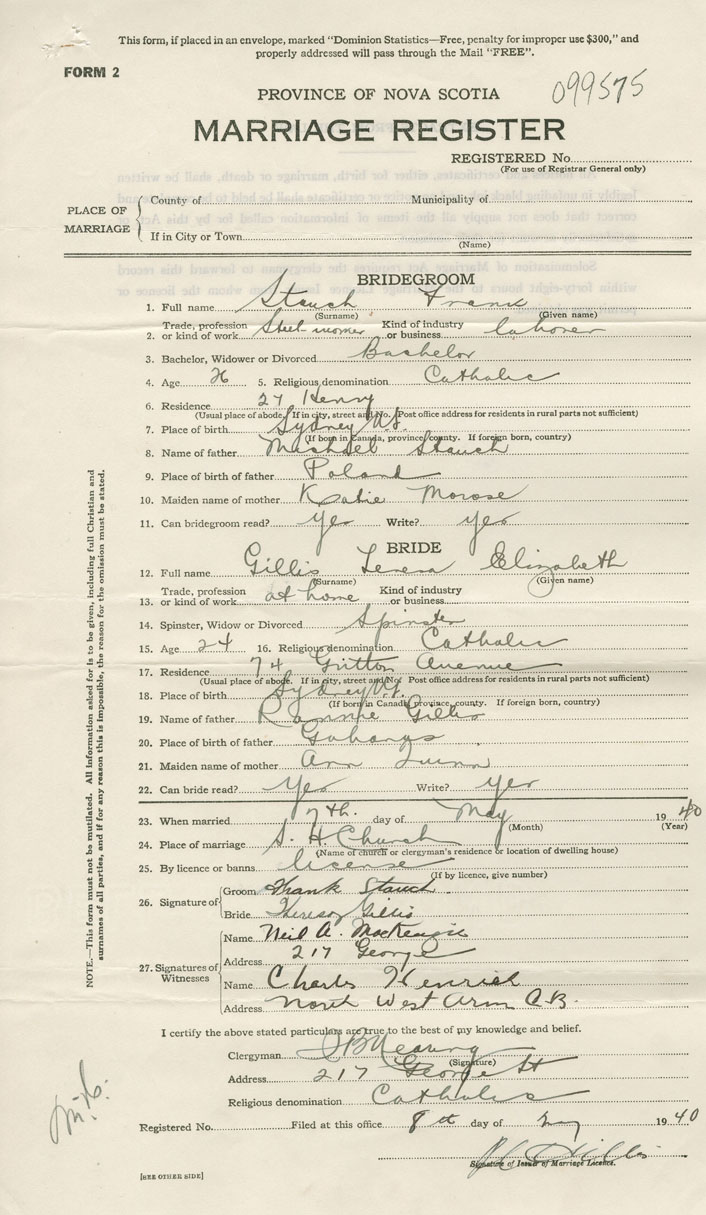 This form, if placed in an envelope, marked "Dominion Statistics—Free, penalty for improper use $300," and
properly addressed will pass through the Mail "FREE".
FORM 2
099575
PROVINCE OF NOVA SCOTIA
MARRIAGE REGISTER
REGISTERED No.
(For use of Registrar General only)
PLACE OF MARRIAGE
County of Municipality of
If in City or Town
(Name)
BRIDEGROOM
1. Full name Stauch Frank
(Surname) (Given name)
2. Trade, profession or kind of work Steel-worker Kind of industry or business labourer
3. Bachelor, Widower or Divorced Bachelor
4. Age 26 5. Religious denomination Catholic
6. Residence 27 Henry
(Usual place of abode. If in city, street and No. Post office address for residents in rural parts not sufficient)
7. Place of birth Sydney N.S.
(If born in Canada, province, county. If foreign born, country)
8. Name of father Michael Stauch
9. Place of birth of father Poland
10. Maiden name of mother Katie Morose
11. Can bridegroom read? yes Write? yes
BRIDE
12. Full name Gillis Teresa Elizabeth
(Surname) (Given name)
13. Trade, profession or kind of work at home Kind of industry or business
14. Spinster, Widow or Divorced Spinster
15. Age 24 16. Religious denomination Catholic
17. Residence 74 Avenue
(Usual place of abode. If in city, street and No. Post office address for residents in rural parts not sufficient)
18. Place of birth Sydney N.S.
(If born in Canada, province, county. If foreign born, country)
19. Name of father Rannie Gillis
20. Place of birth of father Gabarus
21. Maiden name of mother Ann Quinn
22. Can bride read? Yes Write? yes
23. When married 7th. day of May 1940
(Month) (Year)
24. Place of marriage S. H. Church
(Name of church or clergyman's residence or location of dwelling house)
25. By licence or banns license
(If by licence, give number)
26. Signature of
Groom Frank Stauch
Bride Theresa Gillis
27. Signatures of Witnesses
Name Neil A. MacKenzie
Address 217 George
Name Charles Henrich
Address North West Arm C.B.
I certify the above stated particulars are true to the best of my knowledge and belief.
Clergyman
(Signature)
Address 217 George St
Religious denomination Catholic
Registered No. Filed at this office 8th day of May 1940
Gillis
Signature of Issuer of Marriage Licence.
[SEE OTHER SIDE]
NOTE.—This form must not be mutilated. All information asked for is to be given, including full Christian and
surnames of all parties, and if for any reason this is impossible, the reason for the omission must be stated.